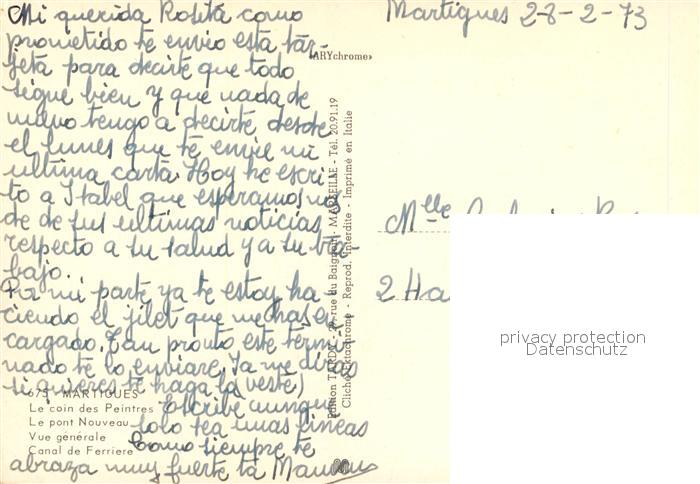 Mi querida Rosita como
prometido te envio esta tar-
jeta para decirte que todo
sigue bien y que nada de
nuevo tengo a decirte desde
el lunes que te envie mi
ultima carta. Hoy he escri-
to a Isabel que esperamos na
de de sus ultimas noticias
respecto a tu salud y a tu tra-
bajo.
Por mi parte ya te estoy ha
ciendo el jilet que me has en
cargado. Tan pronto este termi
nado te lo enviare. Ya me diras
si quieres te haga la veste)
Escribe aunque
solo sea unas lineas
Como siempre te
abraza muy fuerte ta Maman
675 - MARTIGUES
Le coin des Peintres
Le pont Nouveau
Vue générale
Canal de Ferriere
«ARYchrome»
Edition TARDY - rue du Baignoir - MARSEILLE - Tél. 20.91.19
Cliché Ektachrome - Reprod. Interdite - Imprimé en Italie
Martigues 28-2-73
Mlle
2 Ha
privacy protection
Datenschutz